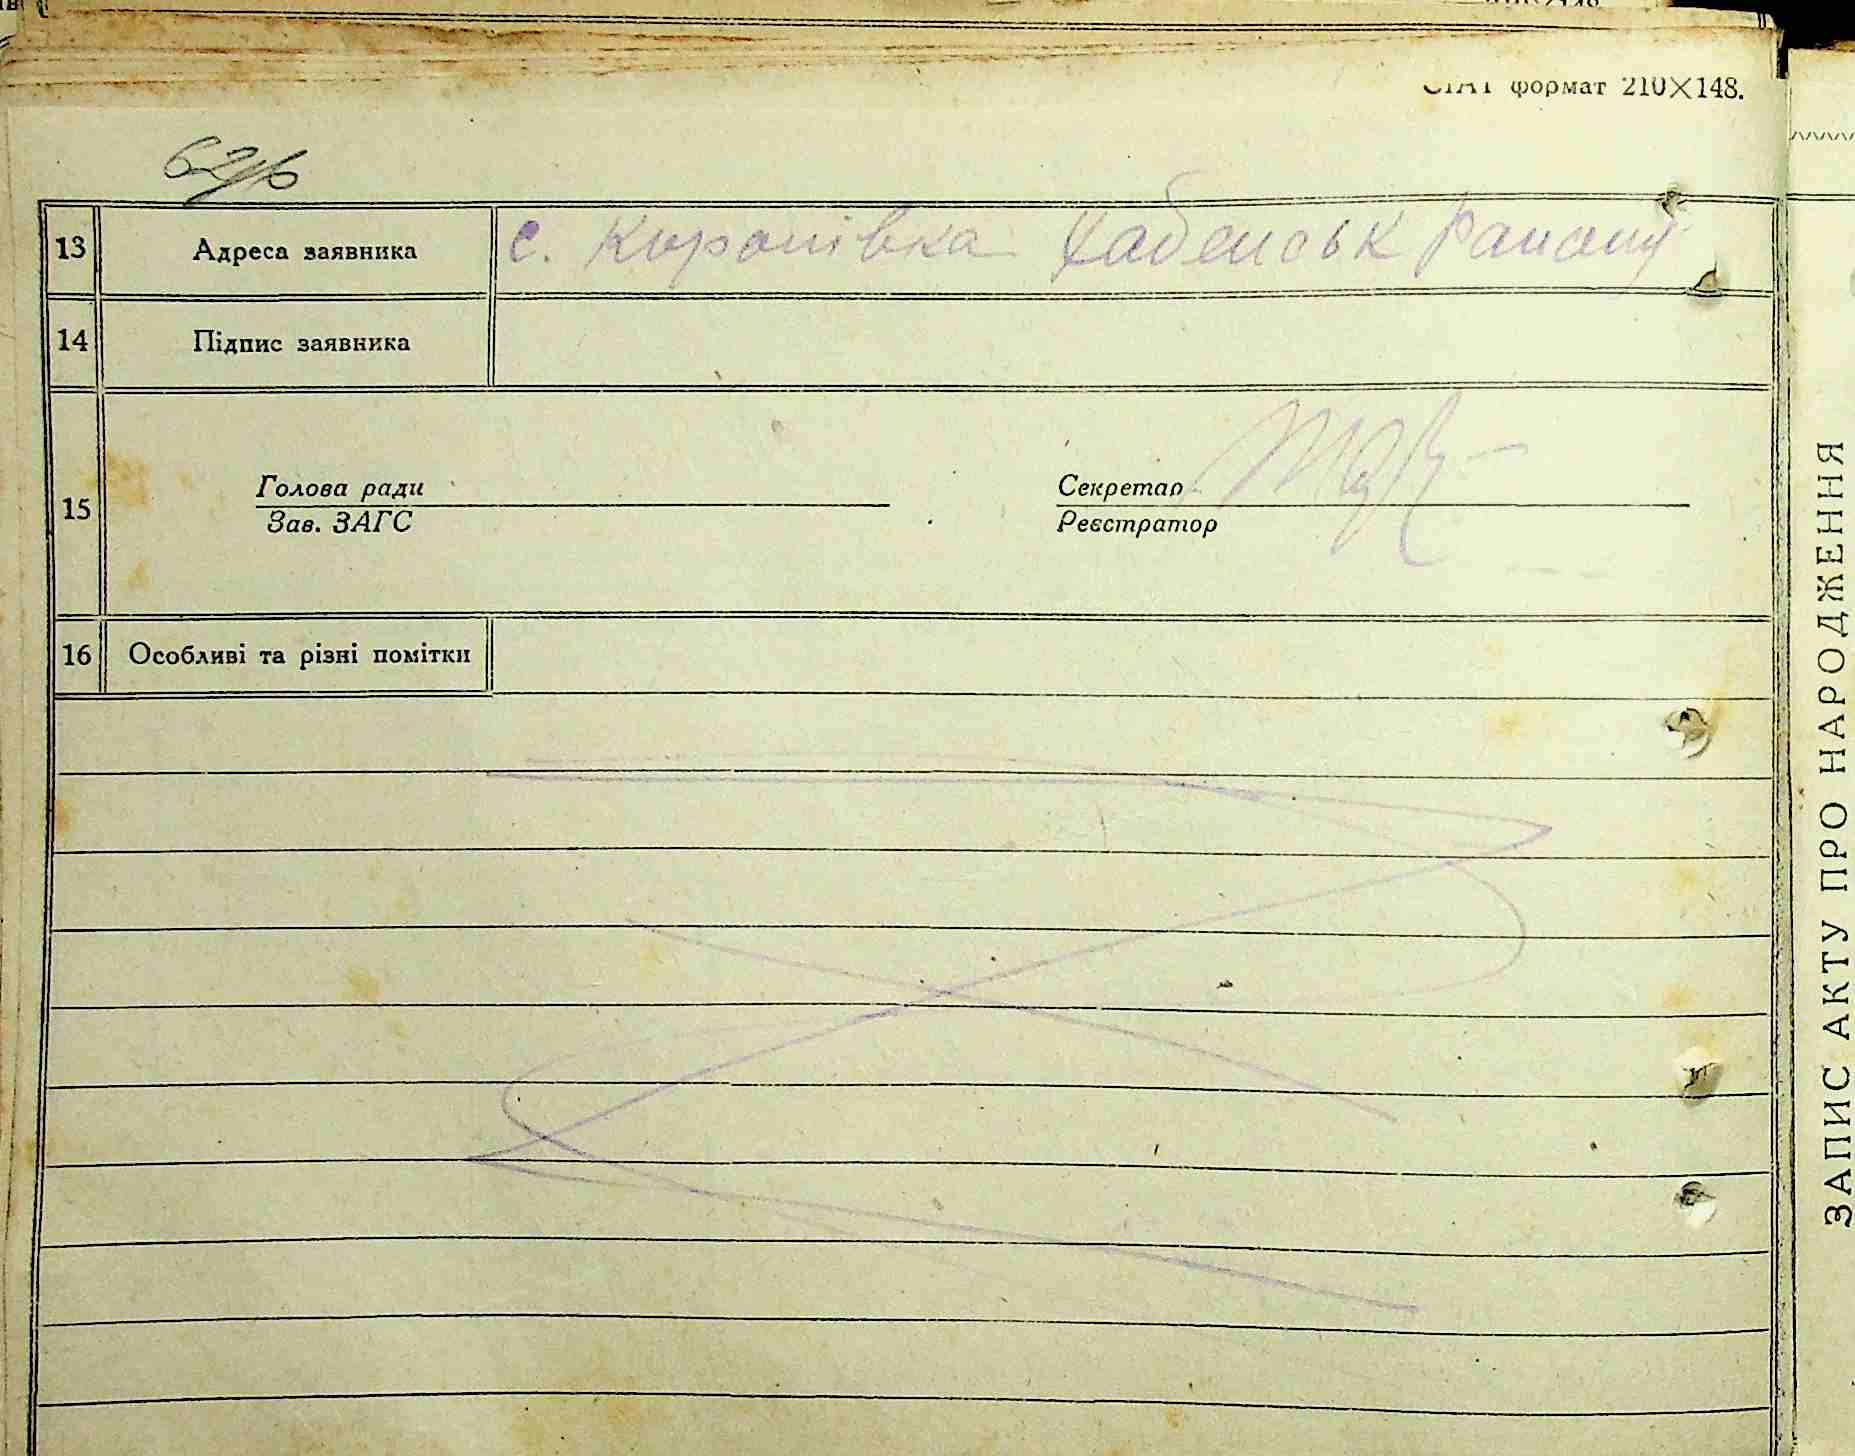 формат 210×148.
13 Адреса заявника с. Куропівка Хабенськ Району
14 Підпис заявника
Голова ради Секретар
15
Зав. ЗАГС Реєстратор
16 Особливі та різні помітки
ЗАПИС АКТУ ПРО НАРОДЖЕННЯ